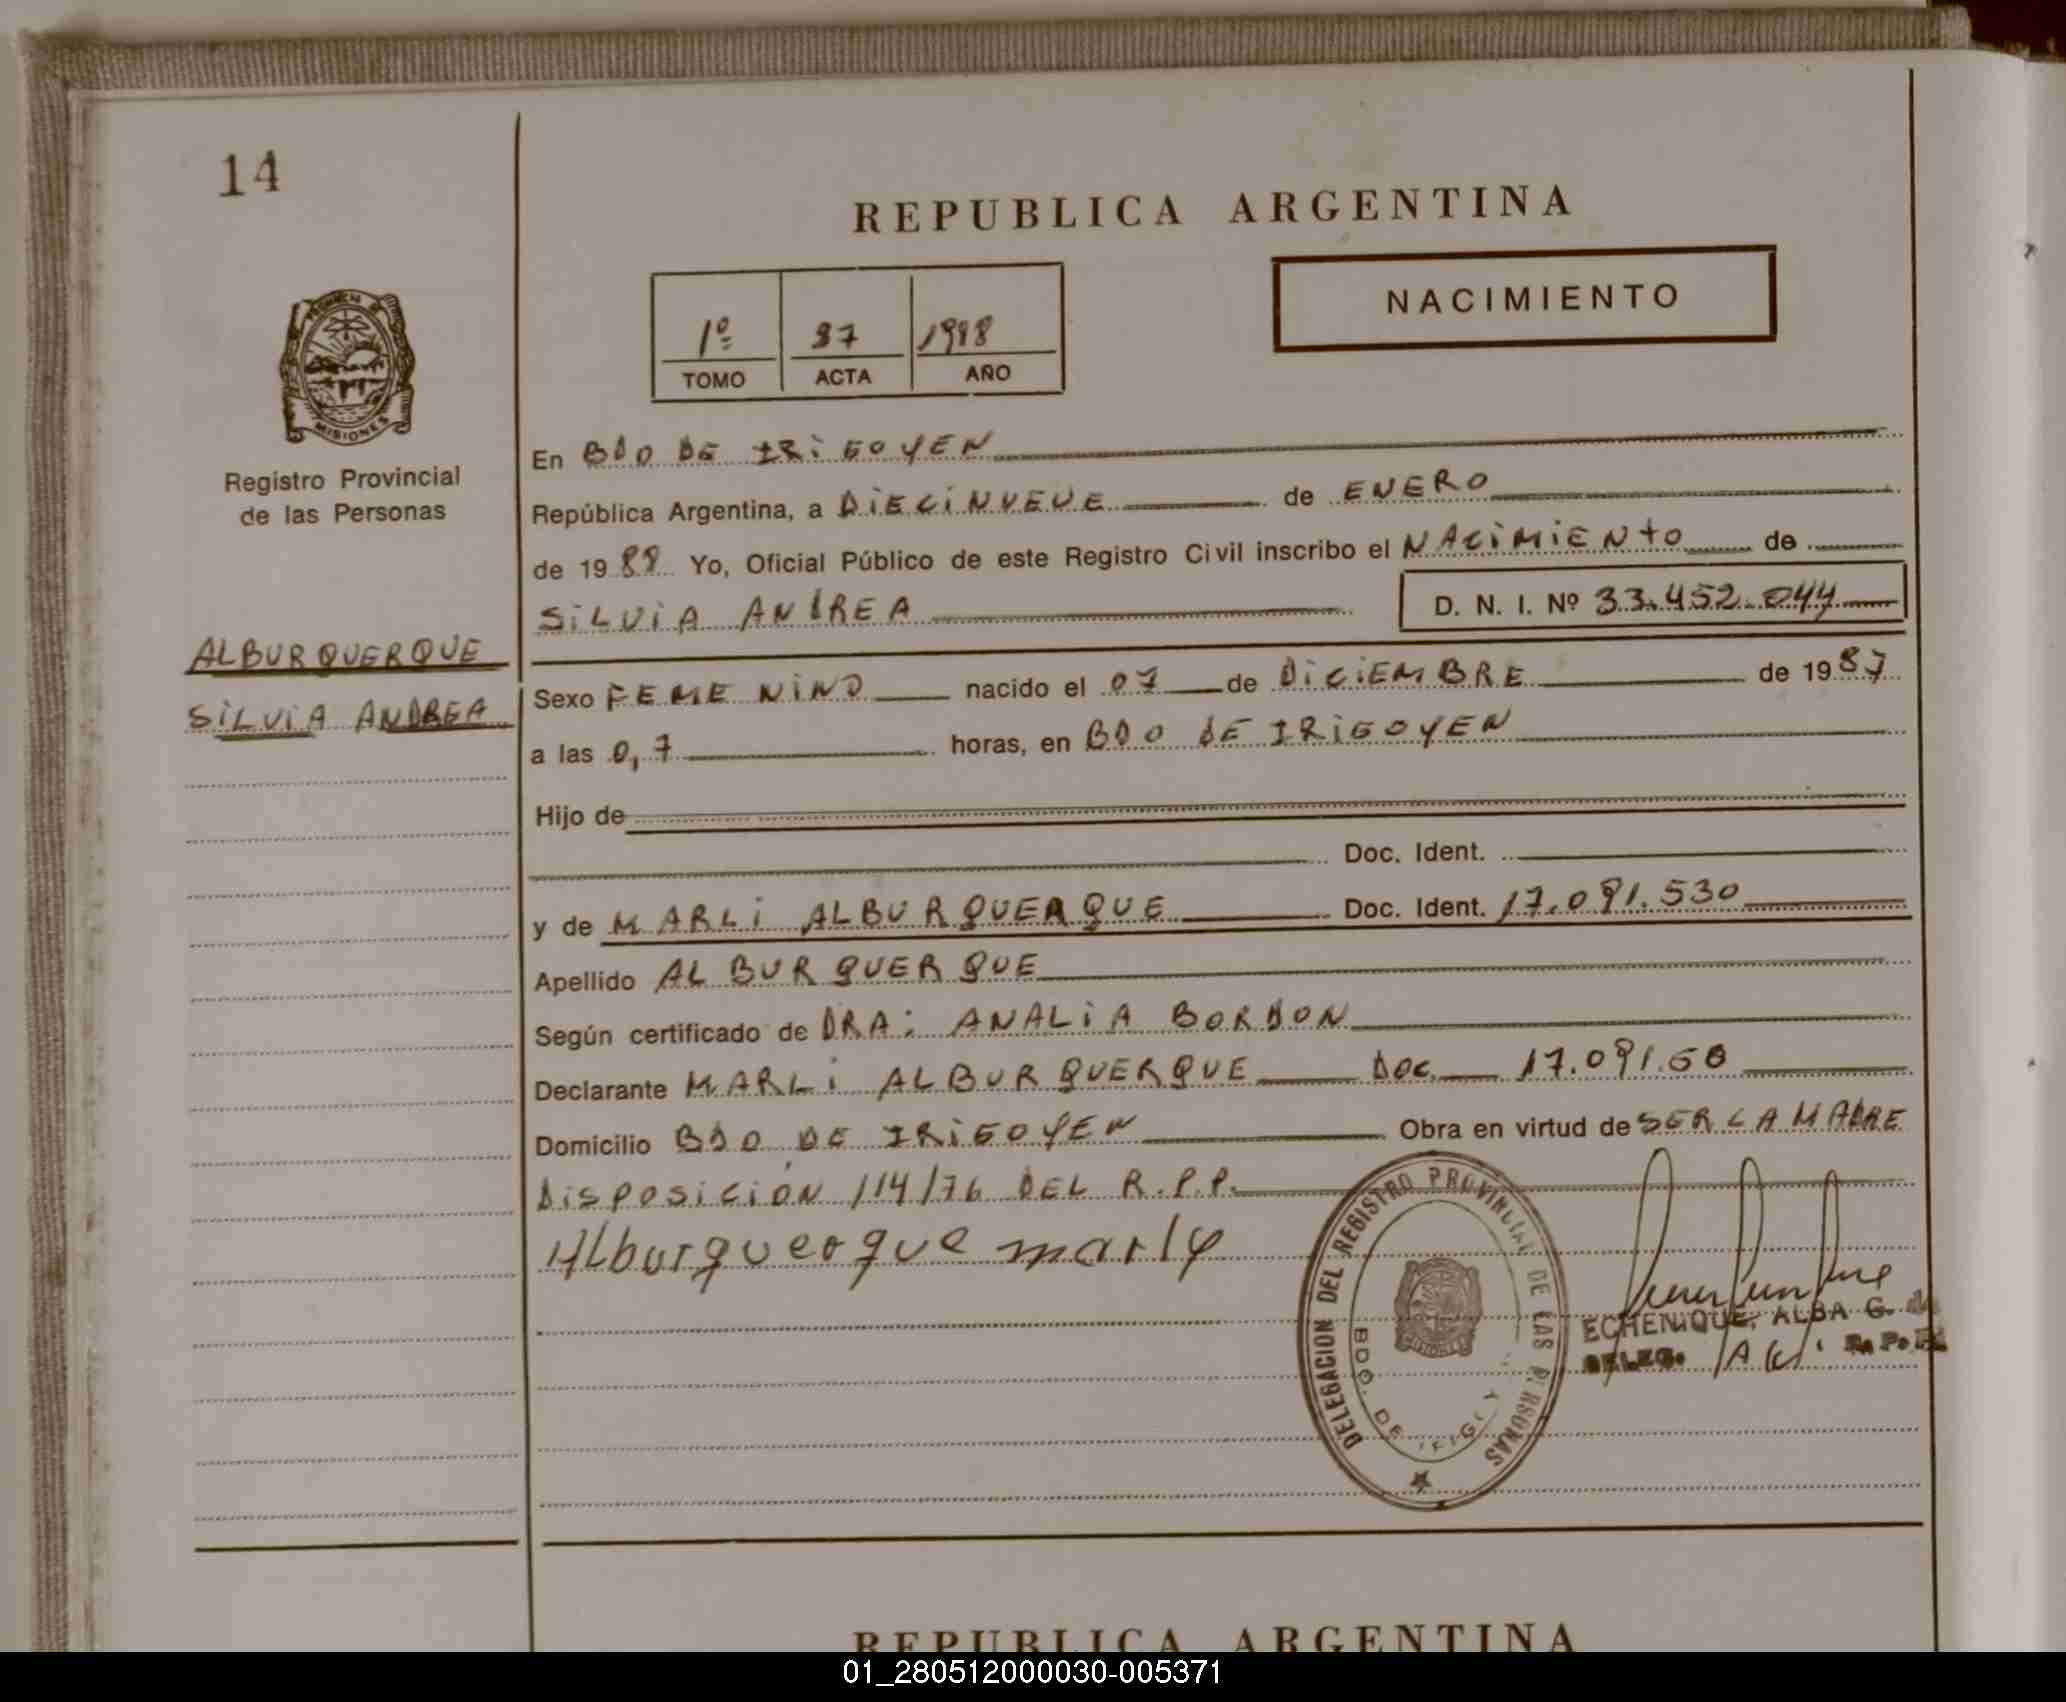 14
REPUBLICA ARGENTINA
NACIMIENTO
1º 37 1988
TOMO ACTA AÑO
MISIONES
Registro Provincial
de las Personas
ALBURQUERQUE
SILVIA ANDREA
En BDO DE IRIGOYEN
República Argentina, a DIECINUEVE de ENERO
de 1988 Yo, Oficial Público de este Registro Civil inscribo el NACIMIENTO de
SILVIA ANDREA D. N. I. Nº 33.452.044
Sexo FEMENINO nacido el 07 de DICIEMBRE de 1987
a las 0,7 horas, en BDO DE IRIGOYEN
Hijo de
Doc. Ident.
y de MARLI ALBURQUERQUE Doc. Ident. 17.091.530
Apellido ALBURQUERQUE
Según certificado de DRA: ANALIA BORDON
Declarante MARLI ALBURQUERQUE DOC 17.091.
Domicilio BDO DE IRIGOYEN Obra en virtud de SER LA MADRE
DISPOSICIÓN 114/76 DEL R.P.P.
Alburquerque marly
DELEGACION DEL REGISTRO PROVINCIAL DE LAS PERSONAS
BDO. DE IRIGOY
ECHENIQUE, ALBA G. de
DELEG. R. P.
REPUBLICA ARGENTINA
01_280512000030-005371